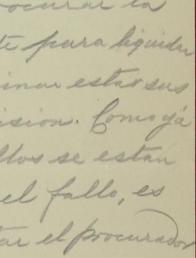 procurar la
te para liquidar
inar estas sus
ision. Como ya
llos se están
el fallo, es
tar el procurador